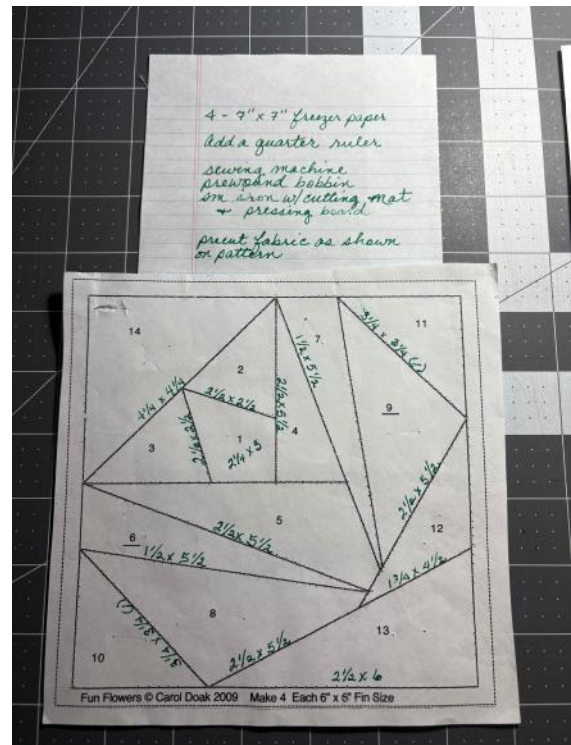 4 - 7" x 7" freezer paper
Add a quarter ruler
sewing machine
prewound bobbin
sm iron w/cutting mat
+ pressing board
precut fabric as shown
on pattern
14
11
7
3 1/4 x 3 1/4 (/)
2
1 1/2 x 5 1/2
4 1/4 x 4 1/4
2 1/2 x 2 1/2
2 1/2 x 5 1/2
9
1
4
3
2 1/2 x 2 1/2
2 1/4 x 3
2 1/2 x 5 1/2
5
12
2 1/2 x 5 1/2
6
1 1/2 x 5 1/2
1 3/4 x 4 1/2
8
3 1/4 x 3 1/4 (/)
13
10
2 1/2 x 5 1/2
2 1/2 x 6
Fun Flowers © Carol Doak 2009 Make 4 Each 6" x 6" Fin Size